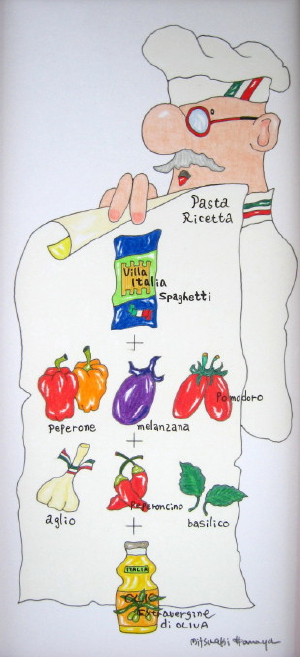 Pasta
Ricetta
Villa
Italia
Spaghetti
+
peperone
melanzana
Pomodoro
+
aglio
Peperoncino
basilico
+
ITALIA
Extravergine
di OLIVA